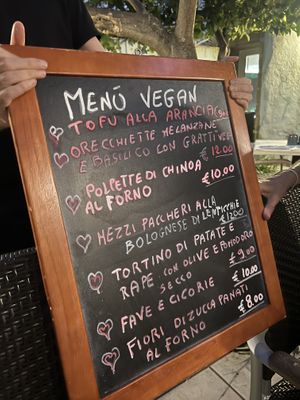 MENÚ VEGAN
TOFU ALLA ARANCIA
ORECCHIETTE MELANZANE
E BASILICO CON GRATTI VEG
€ 12.00
POLPETTE DI CHINOA
AL FORNO
€ 10.00
MEZZI PACCHERI ALLA
BOLOGNESE DI LENTICCHIE
€ 12.00
TORTINO DI PATATE E
RAPE CON OLIVE E POMODORO
SECCO
€ 9.00
FAVE E CICORIE
€ 10.00
FIORI DI ZUCCA PANATI
AL FORNO
€ 8.00